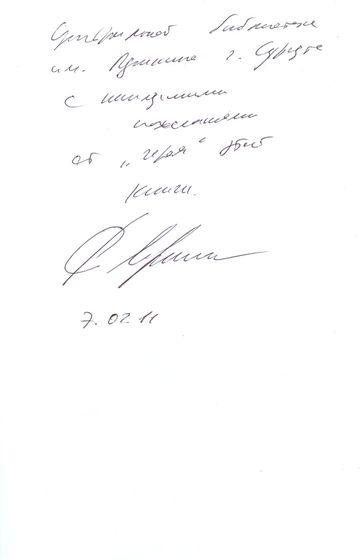 Центральной библиотеке
им. Пушкина г. Сургута
с наилучшими
пожеланиями
от „героя“ этой
книги.
7.02.11